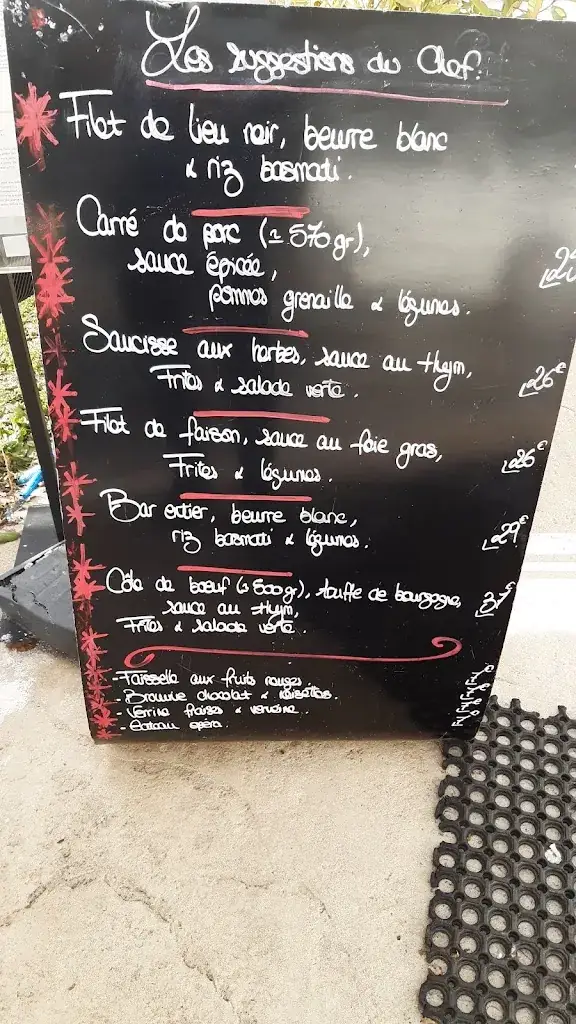 Les suggestions du Chef.
Filet de lieu noir, beurre blanc
& riz basmati.
Carré de porc (± 570 gr),
sauce épicée,
pommes grenaille & légumes.
Saucisse aux herbes, sauce au thym, 26€
Frites & salade verte.
Filet de faison, sauce au foie gras, 26€
Frites & légumes.
Bar entier, beurre blanc, 29€
riz basmati & légumes.
Côte de boeuf (± 500 gr), truffe de bourgogne, 37€
sauce au thym,
Frites & salade verte.
- Faisselle aux fruits rouges
- Brownie chocolat & noisettes.
- Verrine fraises & verveine.
- Gateau opéra.